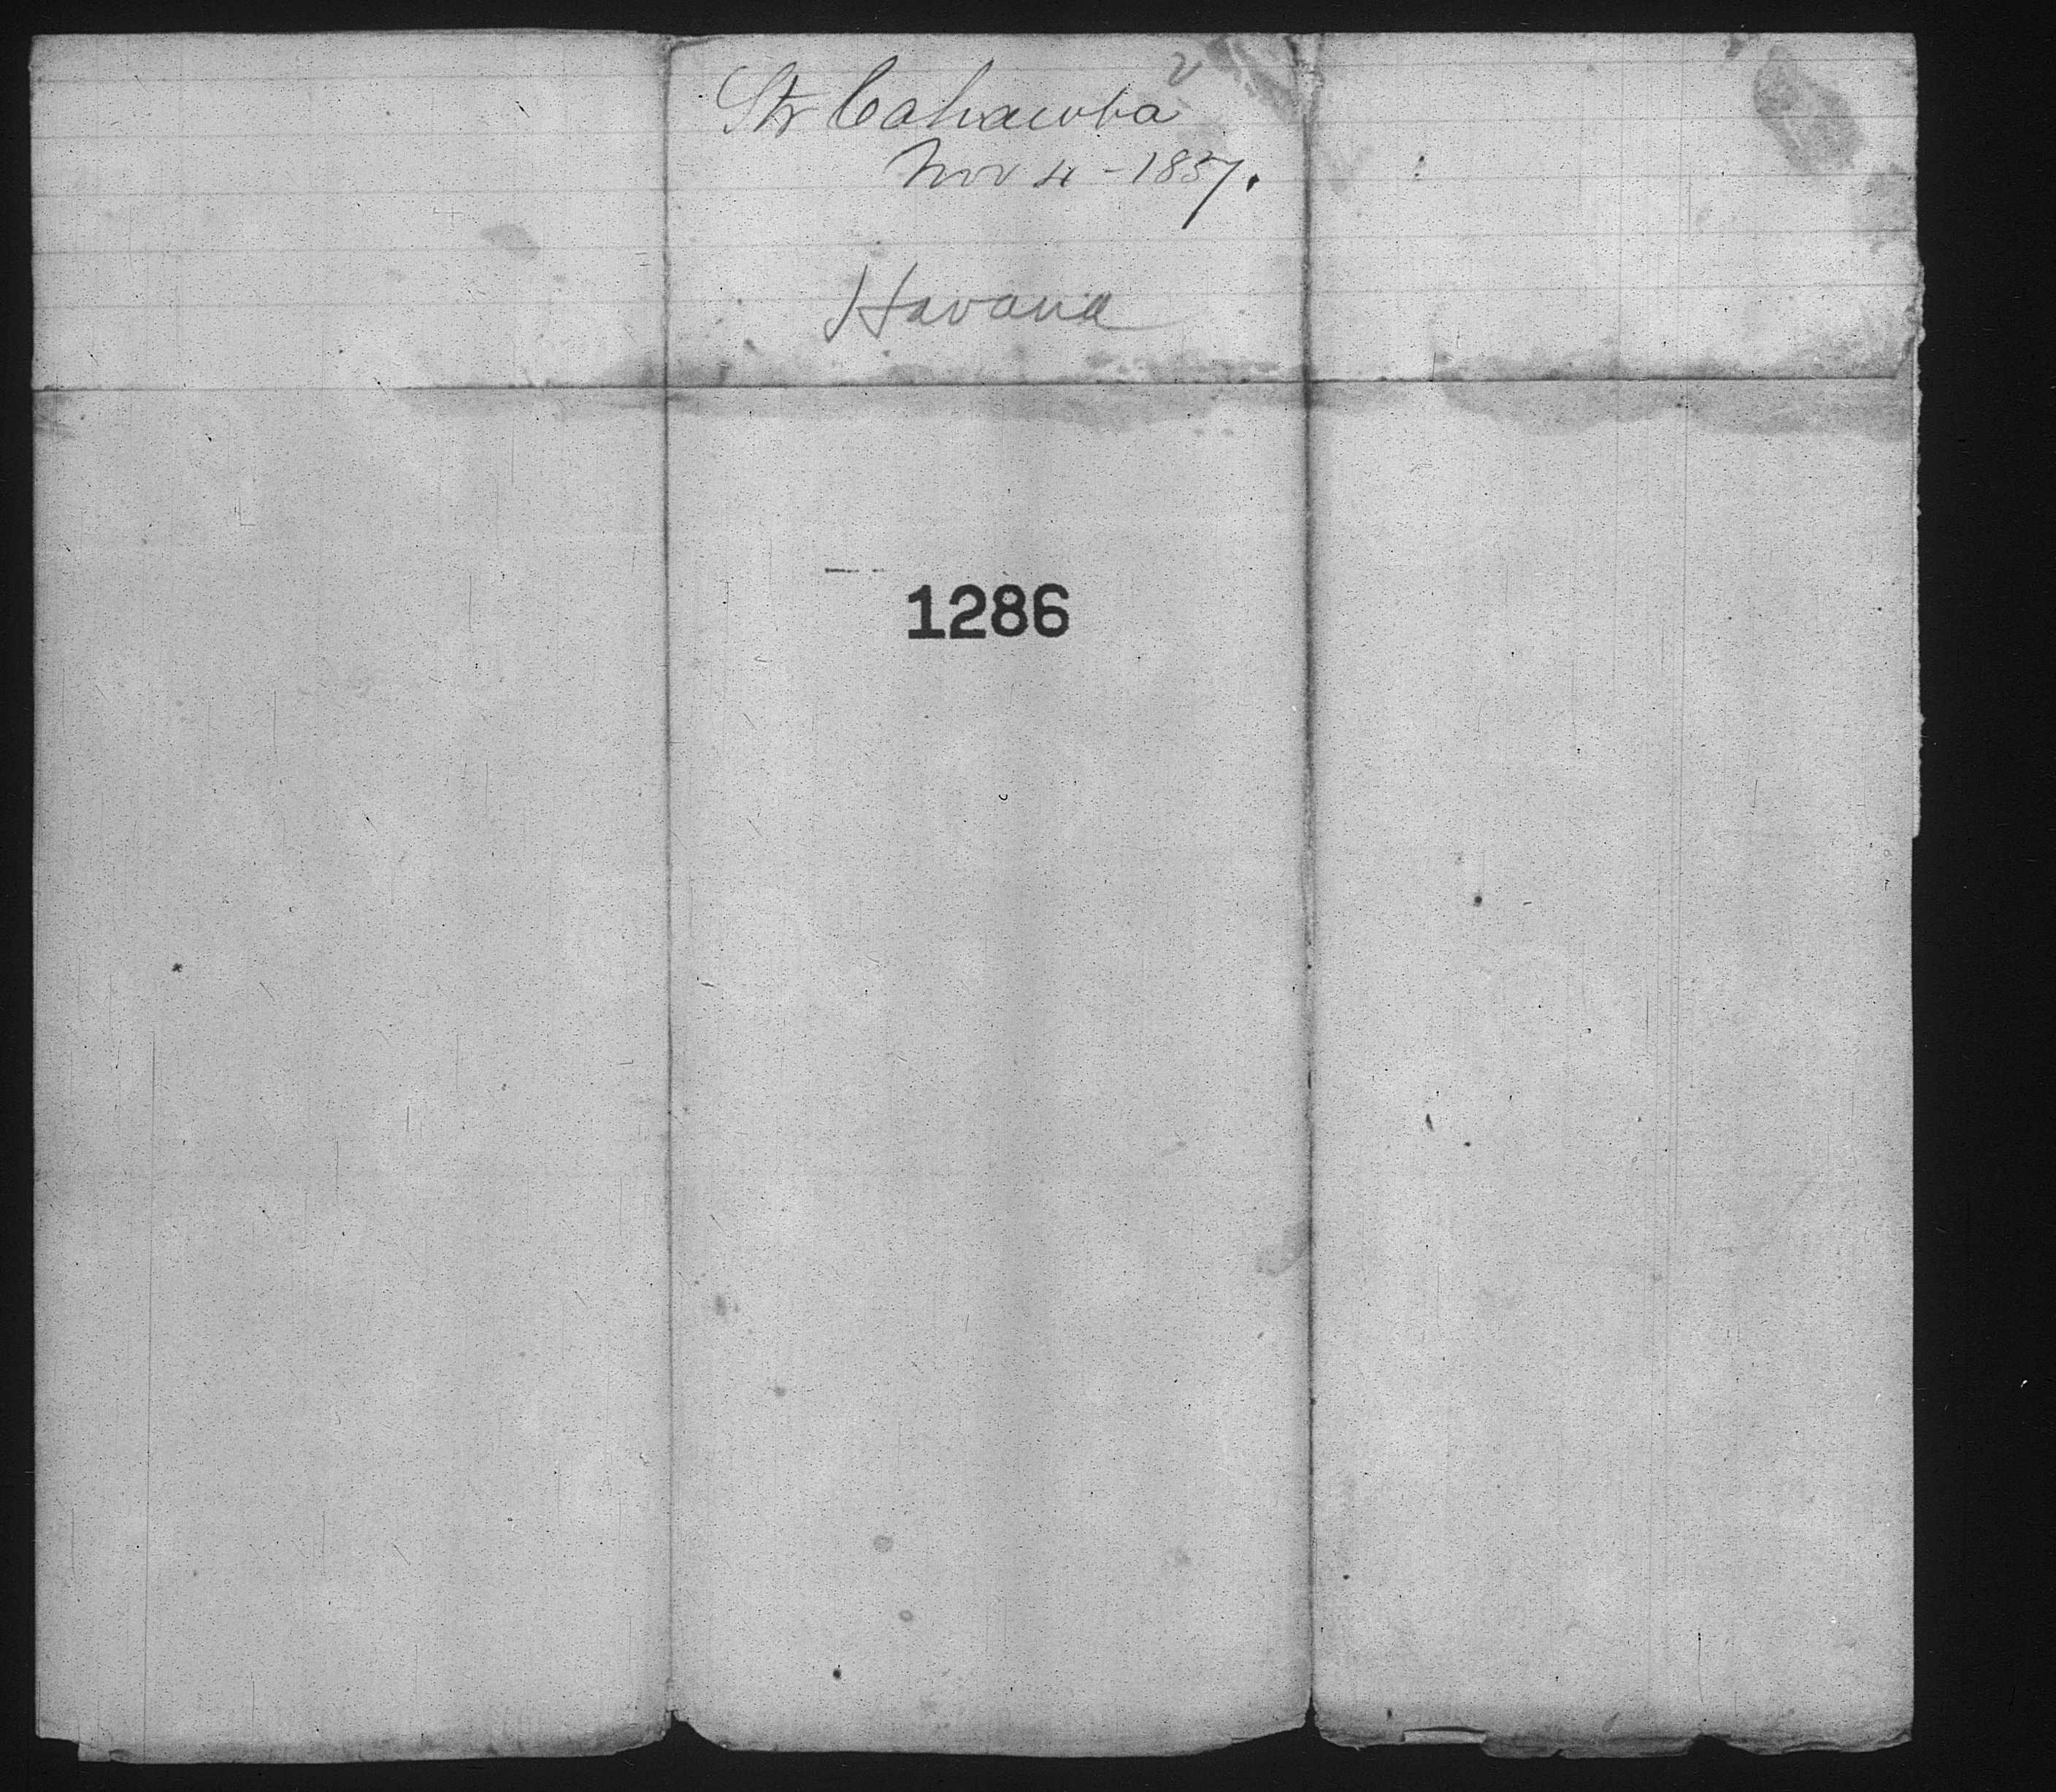 Str Cahawba
Nov 4 - 1857.
Havana
1286